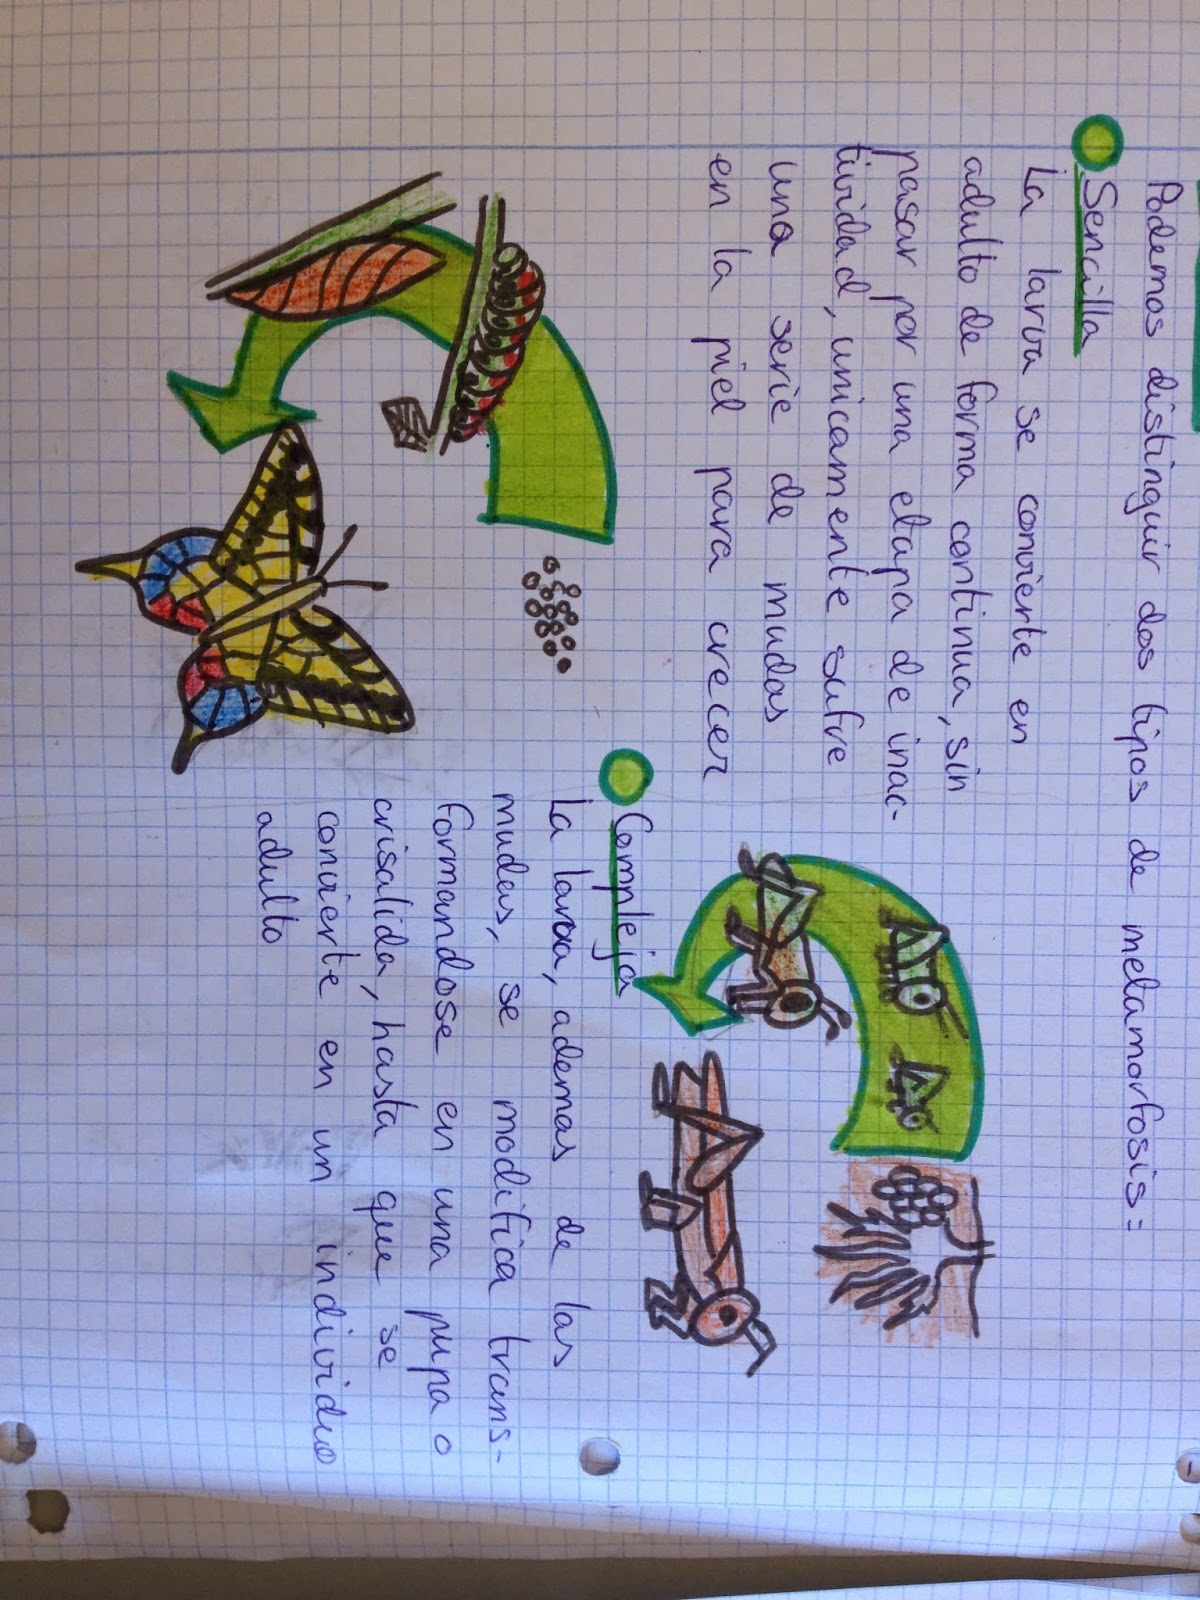 Podemos distinguir dos tipos de metamorfosis:
Sencilla
La larva se convierte en
adulto de forma continua, sin
pasar por una etapa de inac-
tividad, unicamente sufre
una serie de mudas
en la piel para crecer
Compleja
La larva, ademas de las
mudas, se modifica trans-
formandose en una pupa o
crisalida, hasta que se
convierte en un individuo
adulto